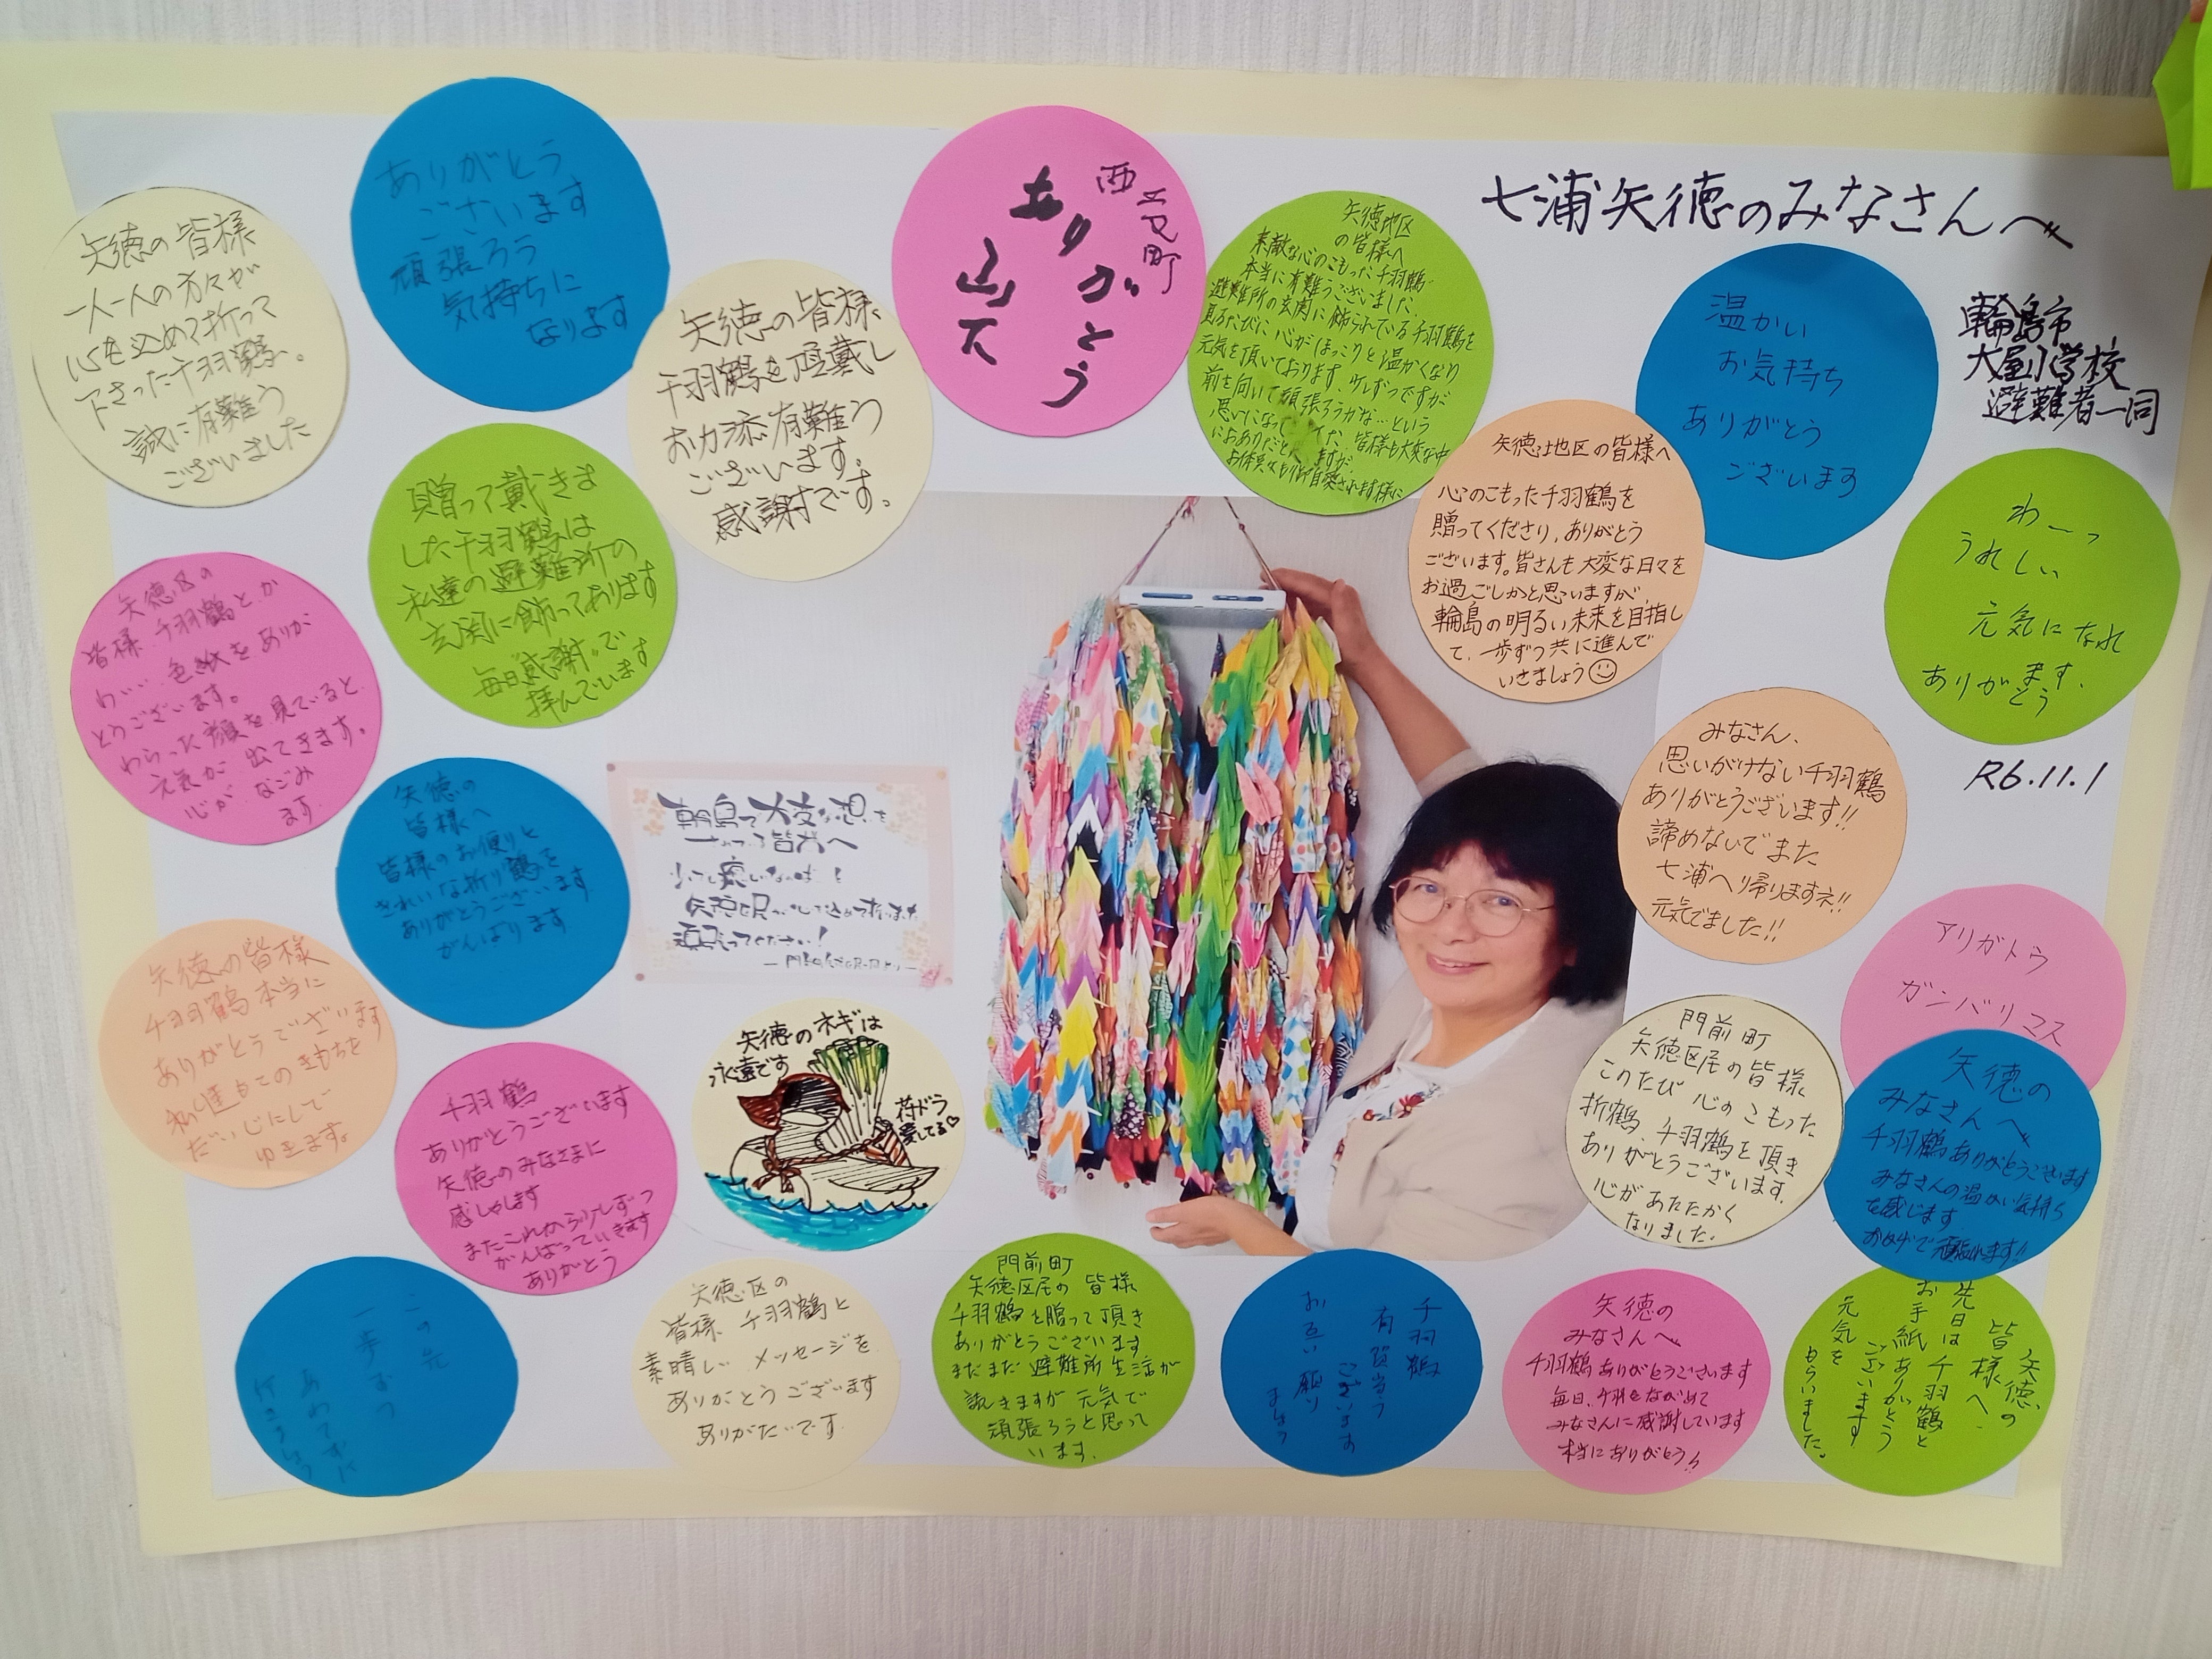 七浦矢徳のみなさんへ
輪島市
大屋小学校
避難者一同
R6.11.1
矢徳の皆様
一人一人の方々が
心を込めて折って
下さった千羽鶴。
誠に有難う
ございました
ありがとう
ございます
頑張ろう
気持ちに
なります
矢徳の皆様
千羽鶴を頂戴し
お力添有難う
ございます。
感謝です。
町
ありがとう
山下
矢徳地区
の皆様へ
素敵な心のこもった千羽鶴
本当に有難うございました。
避難所の玄関に飾られている千羽鶴を
見るたびに心がほっこりと温かくなり
元気を頂いております。少しずつですが
前を向いて頑張ろうかな…という
思いになって
皆様も大変な中
矢徳地区の皆様へ
心のこもった千羽鶴を
贈ってくださり,ありがとう
ございます。皆さんも大変な日々を
お過ごしかと思いますが、
輪島の明るい未来を目指し
て、一歩ずつ共に進んで
いきましょう☺
温かい
お気持ち
ありがとう
ございます
わーっ
うれしい
元気になれ
ます、
ありがとう
贈って戴きま
した千羽鶴は
私達の避難所の
玄関に飾ってあります
毎日感謝で
拝んでいます
矢徳区の
皆様 千羽鶴とか
わいい 色紙をありが
とうございます。
わらった顔を見ていると
元気が 出てきます。
心が なごみ
ます
矢徳の
皆様へ
皆様のお便りと
きれいな折り鶴を
ありがとうございます
がんばります
輪島で大変な想いを
皆様へ
頑張ってください!
みなさん、
思いがけない千羽鶴
ありがとうございます!!
諦めないでまた
七浦へ帰りますネ!!
元気でました!!
アリガトウ
ガンバリマス
矢徳の皆様
千羽鶴本当に
ありがとうでざいます
きもちを
だいじにして
ゆきます。
千羽鶴
ありがとうございます
矢徳のみなさまに
感しゃします
またこれから少しずつ
がんばっていきます
ありがとう
矢徳のネギは
永遠です
愛してる♡
門前町
矢徳区民の皆様
このたび 心のこもった
折鶴、千羽鶴を頂き
ありがとうございます。
心があたたかく
なりました。
矢徳の
みなさんへ
千羽鶴ありがとうございます
みなさんの温かい気持ち
を感じます
おかげで頑張れます!!
この先
一歩ずつ
あわてずに
行きましょう
矢徳区の
皆様 千羽鶴と
素晴しい メッセージを
ありがとうございます
ありがたいです。
門前町
矢徳区民の 皆様
千羽鶴を贈って頂き
ありがとうございます
まだまだ 避難所生活が
続きますが 元気で
頑張ろうと思って
います。
千羽鶴
有難う
ございます
お互い頑張り
ましょう
矢徳の
みなさんへ
千羽鶴ありがとうございます
毎日、千羽をながめて
みなさんに感謝しています
本当にありがとう!!
矢徳の
皆様へ、
先日は千羽鶴と
お手紙ありがとう
ございます
元気を
もらいました。